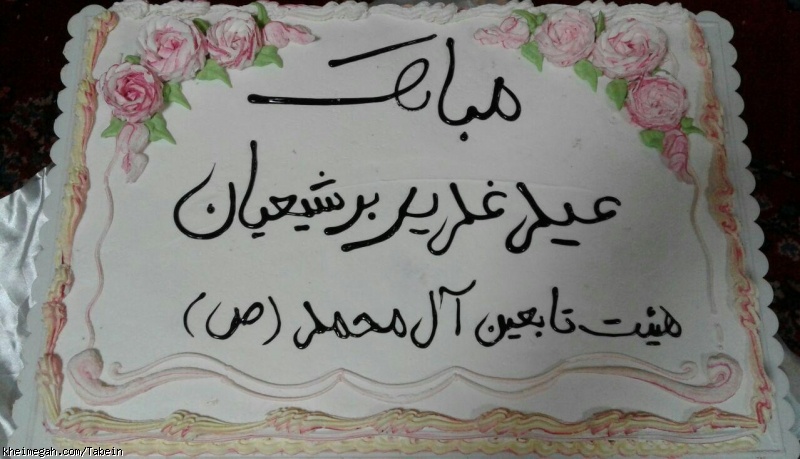 مبارک
عید غدیر بر شیعیان
هیئت تابعین آل محمد (ص)
kheimegah.com/Tabein